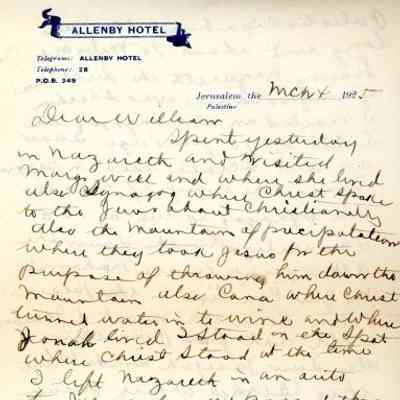 ALLENBY HOTEL
Telegrams: ALLENBY HOTEL
Telephone: 28
P.O.B. 249
Jerusalem the Mch 4 1925
Palestine
Dear William
Spent yesterday
in Nazareth and visited
Marys well and where she lived
also Synagog where Christ spoke
to the Jews about Christianity
also the Mountain of precipatation
where they took Jesus for the
purpose of throwing him down the
Mountain also Cana where Christ
turned water in to wine and where
Jonah lived I stood on the spot
where Christ stood at the time
I left Nazareth in an auto